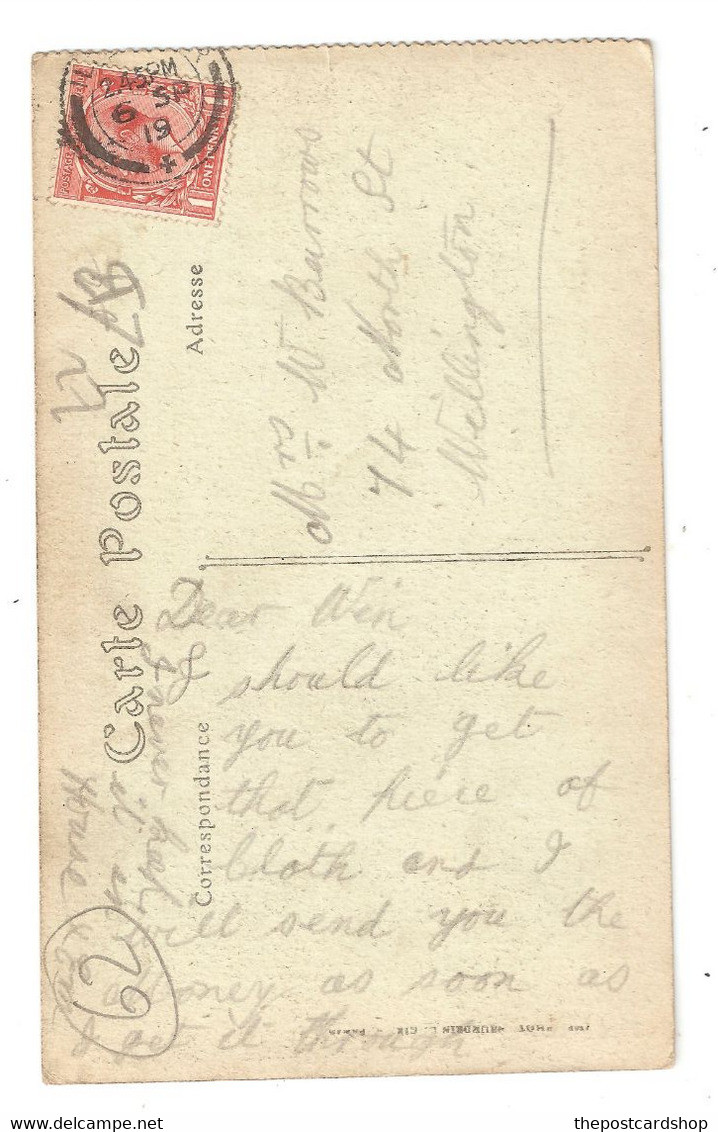 2.45PM
6 SP
19
POSTAGE
ONE PENNY
1
Carte Postale
Correspondance
Adresse
Mrs W. Burrows
74 North St
Wellington
Dear Win
I should like
you to get
that piece of
Cloth and I
will send you the
money as soon as
I get it through
I never
it
House
29
IMP PHOT NEURDEIN ET CIE - PARIS
thepostcardshop